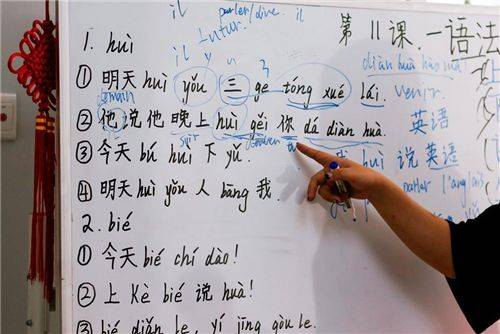 il parler/dire. il
第11课.一语法
1. huì
futur.
il y
diàn huà hào mǎ
① 明天 huì yǒu 三 ge tóng xué lái.
demain
venir.
② 他说他晚上 huì gěi 你 dǎ diàn huà.
英语
soir
③ 今天 bú huì 下 yǔ.
我 huì 说英语
parler l'anglais
④ 明天 huì yǒu 人 bāng 我.
2. bié
① 今天 bié chí dào!
② 上 Kè bié 说 huà!
③ bié diǎn le, yǐ jīng gòu le.